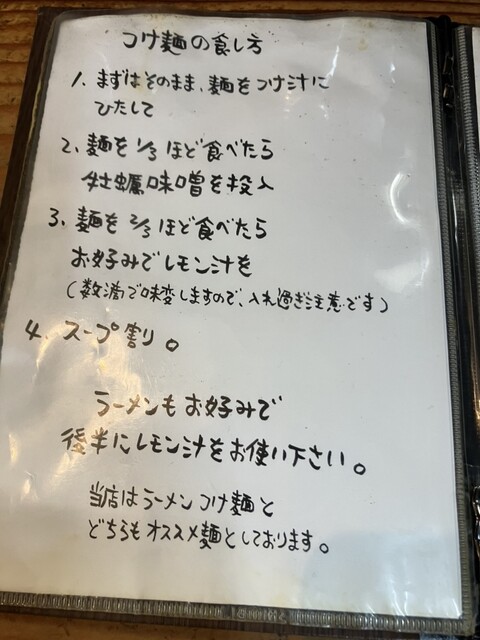 つけ麺の食し方
1. まずはそのまま、麺をつけ汁に
ひたして
2、麺を1/3ほど食べたら
牡蠣味噌を投入
3. 麺を2/3ほど食べたら
お好みでレモン汁を
(数滴で味変しますので、入れ過ぎ注意です)
4、スープ割り。
ラーメンもお好みで
後半にレモン汁をお使い下さい。
当店はラーメンつけ麺と
どちらもオススメ麺としております。